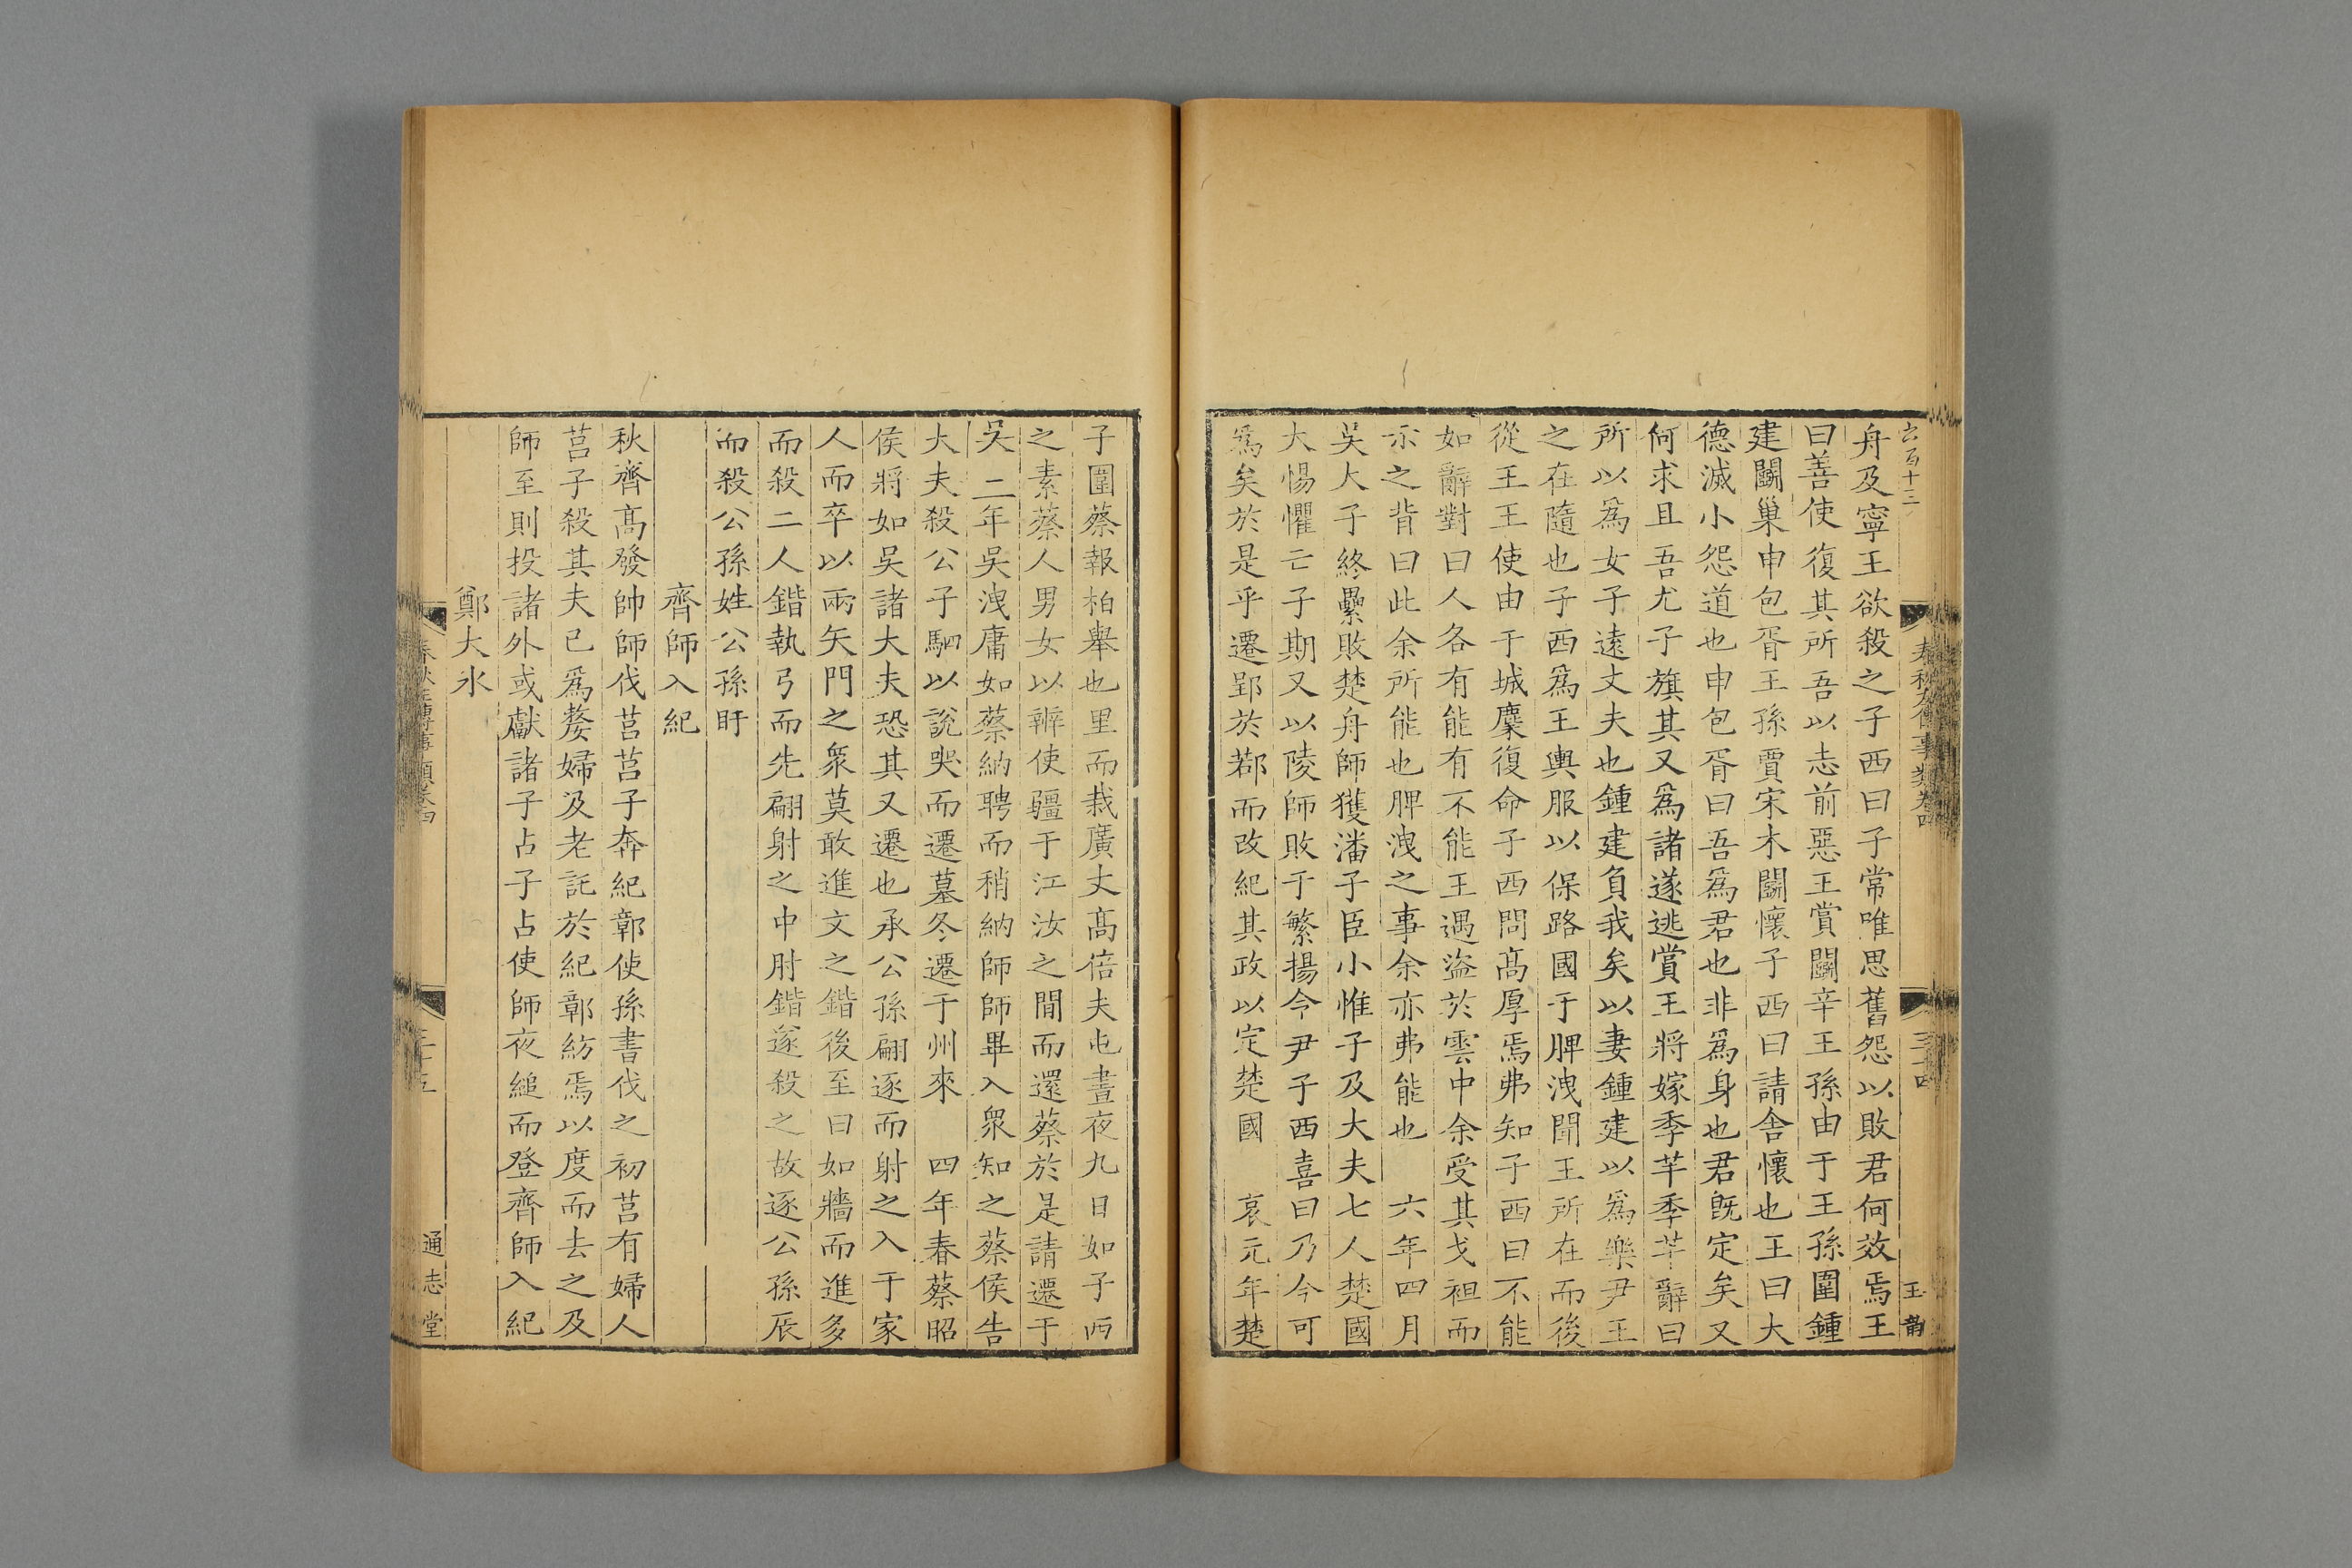 六百十三
春秋左傳事類卷四
三十四
玉韵
舟及寧王欲殺之子西曰子常唯思舊怨以敗君何效焉王
曰善使復其所吾以志前惡王賞鬬辛王孫由于王孫圉鍾
建鬬巢申包胥王孫賈宋木鬬懷子西曰請舍懷也王曰大
德滅小怨道也申包胥曰吾爲君也非爲身也君旣定矣又
何求且吾尤子旗其又爲諸遂逃賞王將嫁季芊季芊辭曰
所以爲女子遠丈夫也鍾建負我矣以妻鍾建以爲樂尹王
之在隨也子西爲王輿服以保路國于脾洩聞王所在而後
從王王使由于城麇復命子西問高厚焉弗知子西曰不能
如辭對曰人各有能有不能王遇盜於雲中余受其戈袒而
示之背曰此余所能也脾洩之事余亦弗能也　六年四月
吳大子終纍敗楚舟師獲潘子臣小惟子及大夫七人楚國
大惕懼亡子期又以陵師敗于繁揚令尹子西喜曰乃今可
爲矣於是乎遷郢於鄀而改紀其政以定楚國　哀元年楚
子圍蔡報柏舉也里而栽廣丈高倍夫屯晝夜九日如子西
之素蔡人男女以辨使疆于江汝之間而還蔡於是請遷于
吳　二年吳洩庸如蔡納聘而稍納師師畢入衆知之蔡侯告
大夫殺公子駟以說哭而遷墓冬遷于州來　四年春蔡昭
侯將如吳諸大夫恐其又遷也承公孫翩逐而射之入于家
人而卒以兩矢門之衆莫敢進文之鍇後至曰如牆而進多
而殺二人鍇執弓而先翩射之中肘鍇遂殺之故逐公孫辰
而殺公孫姓公孫盱
齊師入紀
秋齊高發帥師伐莒莒子奔紀鄣使孫書伐之初莒有婦人
莒子殺其夫已爲嫠婦及老託於紀鄣紡焉以度而去之及
師至則投諸外或獻諸子占子占使師夜縋而登齊師入紀
鄭大水
春秋左傳事類卷四
三十五
通志堂